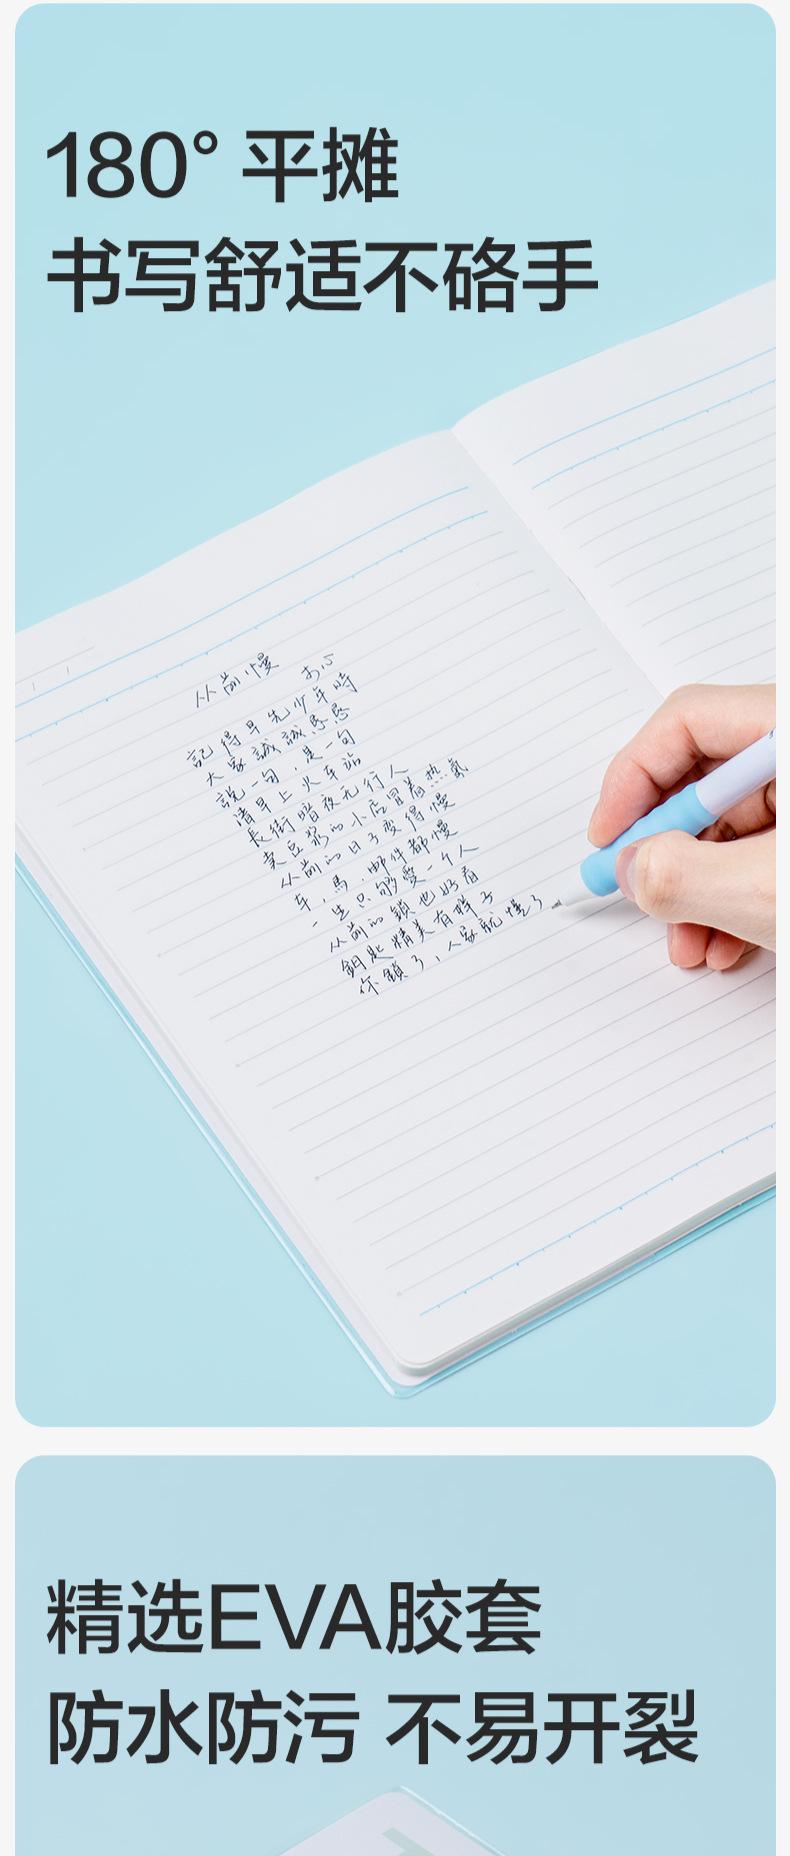 180° 平摊
书写舒适不硌手
从前慢
木心
記得早先少年時
大家誠誠懇懇
說一句,是一句
清早上火车站
長街暗夜无行人
卖豆浆的小店冒着热氣
从前的日子变得慢
车,馬,邮件都慢
一生只够愛一个人
从前的鎖也好看
鑰匙精美有样子
你鎖了,人家就懂了
精选EVA胶套
防水防污 不易开裂